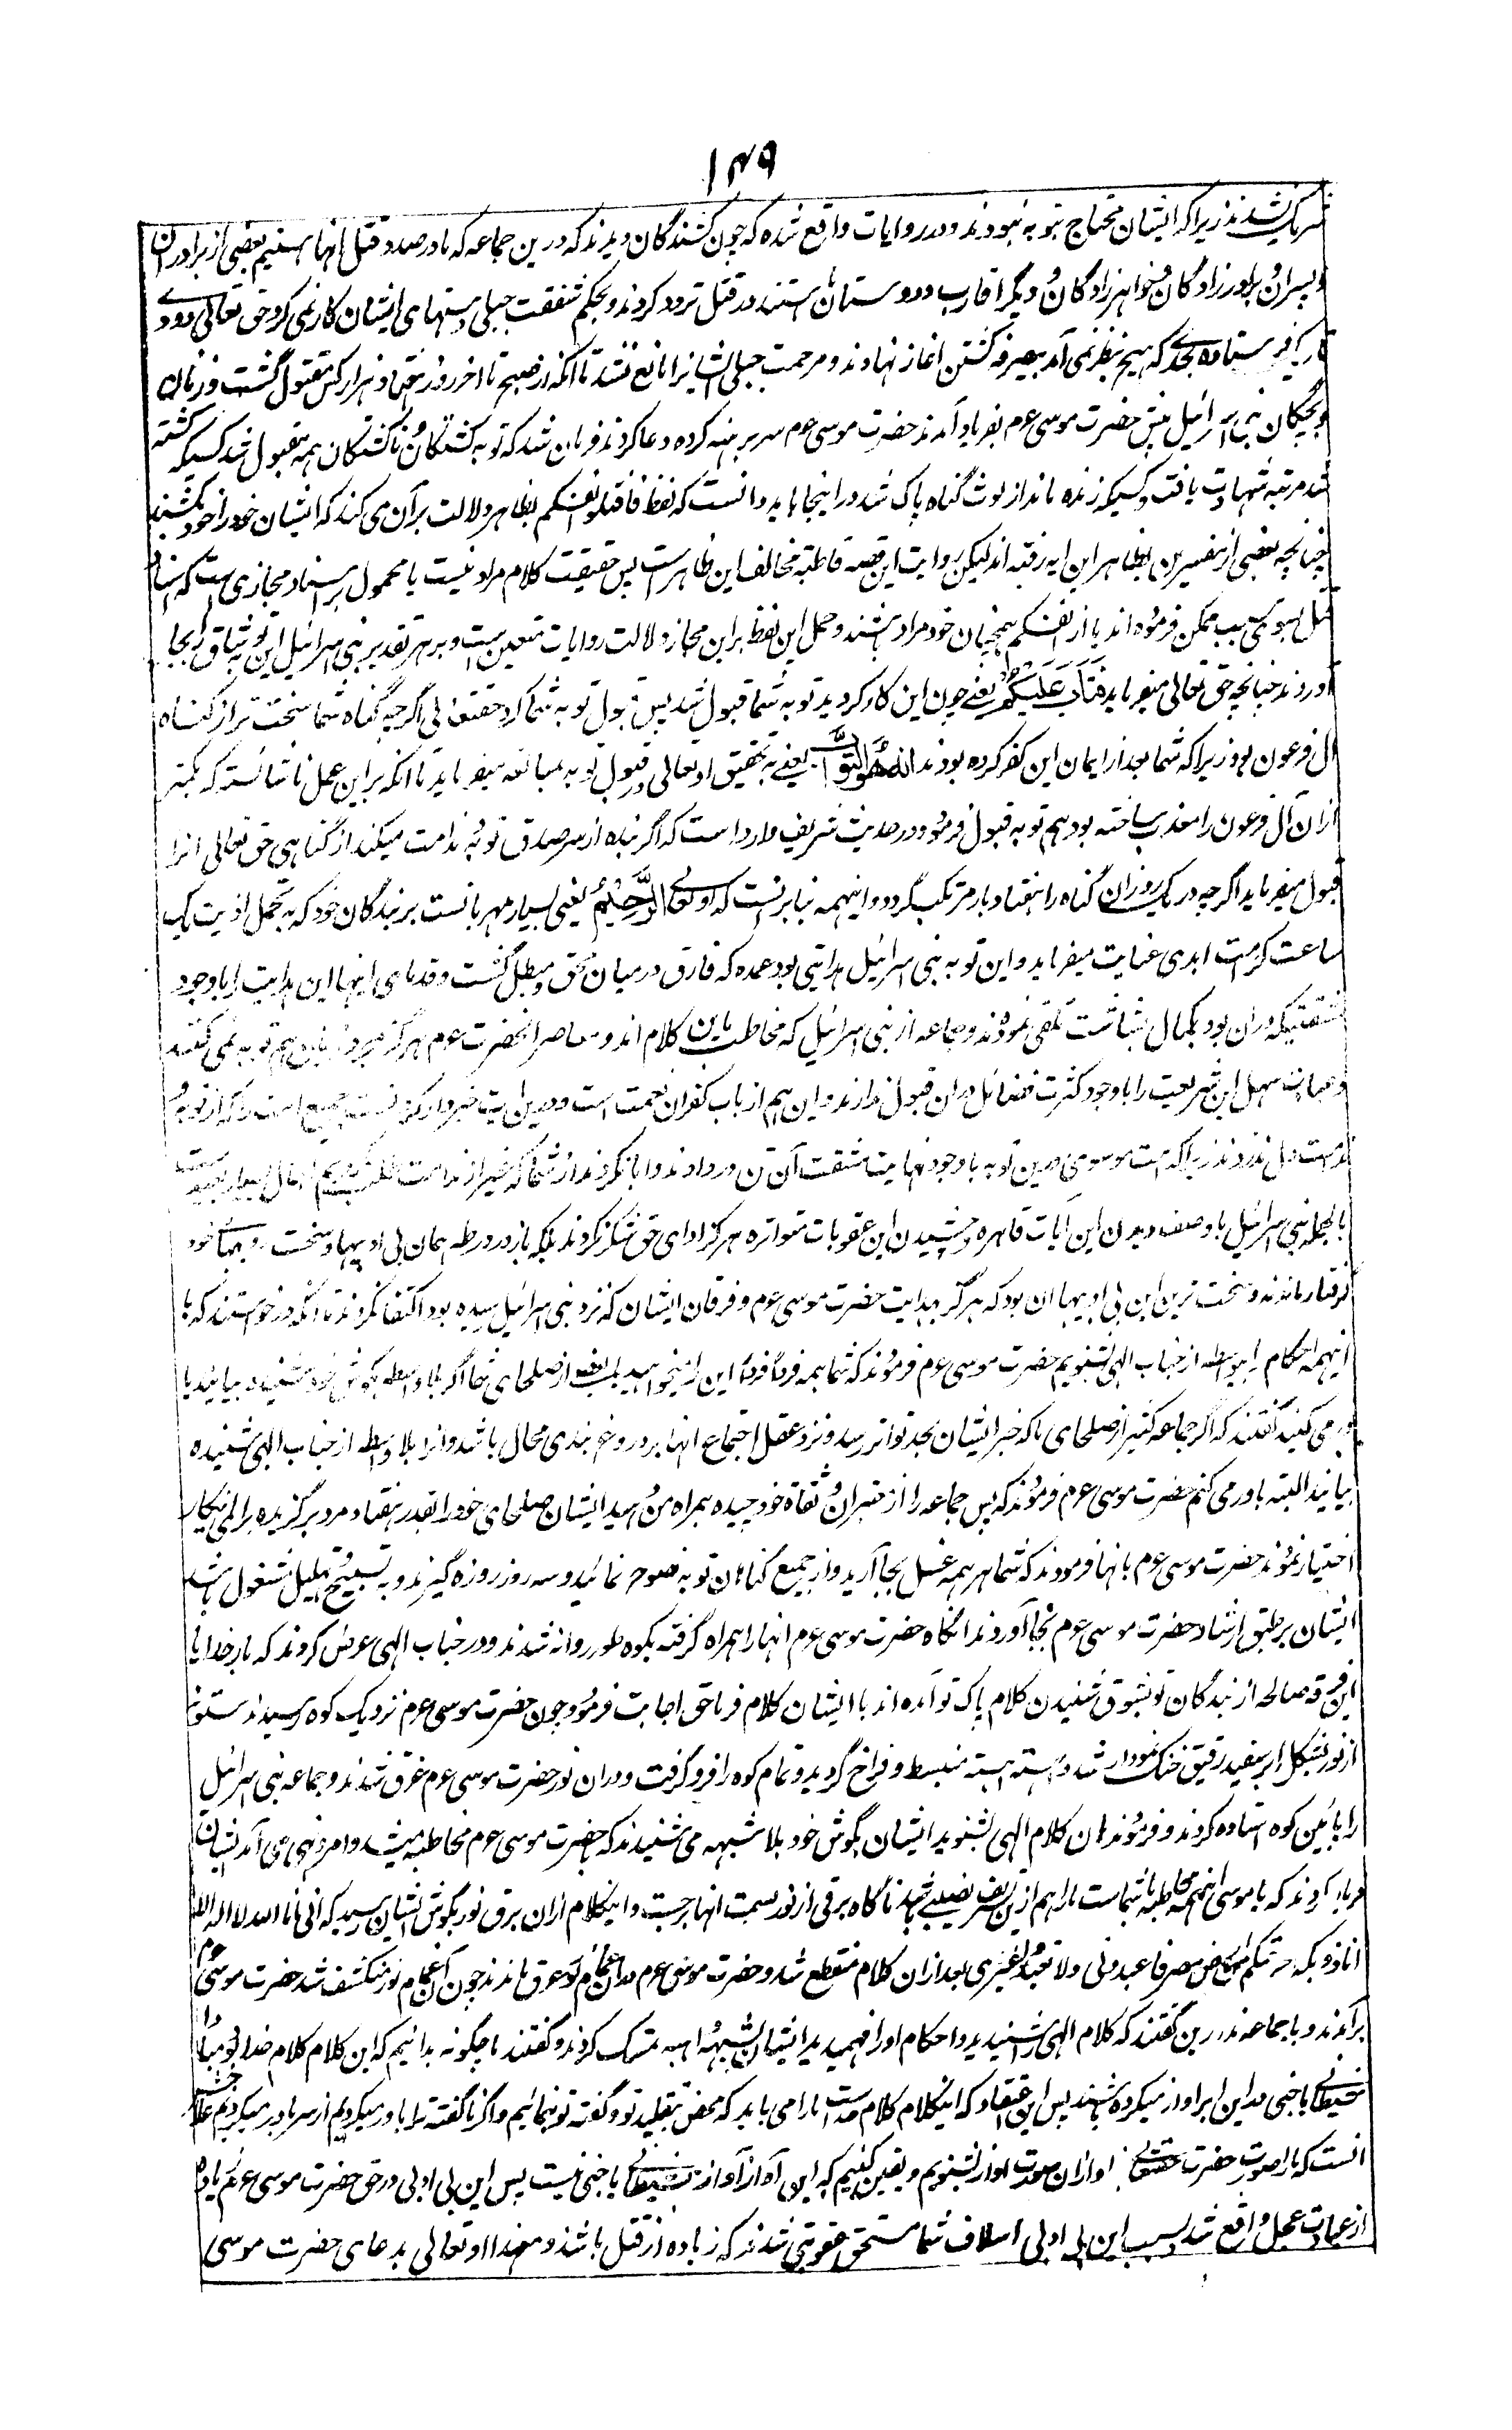 ۱۴۹
شریک نشدند زیرا که ایشان محتاج بتوبه نبودند و در روایات واقع شده که چون کشندگان دیدند که درین جماعه که ما در صدد قتل انها هستیم بعضی از برادران
و پسران و برادرزادگان و خواهرزادگان و دیگر اقارب و دوستان ما هستند در قتل تردد کردند و بحکم شفقت جبلی دستهای ایشان کار نمی کرد حق تعالی دودے
تاریک فرستاد بحدیکه هیچ بنظر نمی آمد بیصرفه کشتن اغاز نهادند و مرحمت جبلی ایشانرا مانع نشد تا انکه از صبح تا اخر روز هفتاد هزار کس مقتول گشت و زنان
و بچگان بنی اسرائیل پیش حضرت موسی عوم بفریاد آمدند حضرت موسی عوم سر برهنه کرده دعا کردند فرمان شد که توبه کشتگان و ناکشتگان همه مقبول شد کسیکه کشته
شد مرتبه شهادت یافت و کسیکه زنده ماند از لوث گناه پاک شد و در اینجا باید دانست که لفظ فاقتلوا انفسکم بظاهر دلالت بر آن می کند که ایشان خود را خود بکشند
چنانچه بعضی از مفسرین بظاهر این ایه رفته اند لیکن روایت این قصه قاطبة مخالف این ظاهر است پس حقیقت کلام مراد نیست یا محمول بر اسناد مجازی است که اسناد
فعل بسوی سبب ممکن فرموده اند یا از انفسکم همجنسان خود مراد باشند و حمل این لفظ برین مجاز دلالت روایات متعین است و بر هر تقدیر بنی اسرائیل این توبه شاق را بجا
آوردند چنانچه حق تعالی میفرماید فَتَابَ عَلَیْکُمْ یعنے چون این کار کردید توبه شما قبول شد پس قبول توبه شما کرد حق تعالی اگرچه گناه شما سخت تر از گناه
آل فرعون بود زیرا که شما بعد از ایمان این کفر کرده بودند إِنَّهُ هُوَ التَّوَّابُ یعنے به تحقیق او تعالی در قبول توبه مبالغه میفرماید تا انکه بر این عمل ناشائسته که کمتر
ازان آل فرعون را معذب ساخته بود هم توبه قبول فرمود و در حدیث شریف وارد است که اگر بنده از سر صدق توبه و ندامت میکند از گناهی حق تعالی انرا
قبول میفرماید اگرچه در یک روز ان گناه را هفتاد بار مرتکب گردد و اینهمه بنا برانست که او تعالی الرَّحِیْمُ یعنی بسیار مهربانست بر بندگان خود که به تحمل اذیت یک
ساعت کرامت ابدی عنایت میفرماید و این توبه بنی اسرائیل هدایتی بود عمده که فارق در میان محق و مبطل گشت و قدمای اینها این هدایت را با وجود
مشقتیکه دران بود بکمال بشاشت تلقی نمودند و جماعه از بنی اسرائیل که مخاطب باین کلام اند و معاصر انحضرت عوم هرگز بمجرد زبان هم توبه نمی کنند
و عبادات سهل این شریعت را با وجود کثرت فضائل دران قبول ندارند و این هم از باب کفران نعمت است و درین ایت خبردار کردنست جمیع امت را که از توبه و
ندامت دل ندزدند زیرا که امت موسوی درین توبه با وجود نهایت مشقت آن تن در دادند و ابا نکردند از شما که غیر از ندامت طلب
بالجمله بنی اسرائیل با وصف دیدن این آیات قاهره و چشیدن این عقوبات متواتره هرگز ادای حق شکر نکردند بلکه باز در ورطه همان بی ادبیها و سخت رویهای خود
گرفتار ماندند و سخت ترین این بی ادبیها ان بود که هرگز بهدایت حضرت موسی عوم و فرقان ایشان که نزد بنی اسرائیل رسیده بود اکتفا نکردند تا انکه درخواستند که ما
اینهمه احکام را بیواسطه از جناب الهی بشنویم حضرت موسی عوم فرمودند که شما همه فردا فردا این را میخواهید یا بعضے از صلحای شما اگر بلا واسطه بگوش خود شنیده بیایند باز
باور می کنید گفتند که اگر جماعه کثیر از صلحای ما که خبر ایشان بحد تواتر رسد و نزد عقل اجتماع انها بر دروغ بندی محال باشد و انرا بلا واسطه از جناب الهی شنیده
بیایند البته باور می کنیم حضرت موسی عوم فرمودند که پس جماعه را از معتبران و ثقاة خود چیده همراه من دهید ایشان صلحای خود را بقدر هفتاد مرد برگزیده برای اینکار
اختیار نمودند حضرت موسی عوم بانها فرمودند که شما هر همه غسل بجا آرید و از جمیع گناهان توبه نصوح نمائید و سه روز روزه گیرند و به تسبیح و تهلیل مشغول باشند
ایشان بر طبق ارشاد حضرت موسی عوم بجا آوردند انگاه حضرت موسی عوم انها را همراه گرفته بکوه طور روانه شدند و در جناب الهی عرض کردند که بار خدایا
این فرقه صالحه از بندگان تو بشوق شنیدن کلام پاک تو آمده اند با ایشان کلام فرما حق اجابت فرمود چون حضرت موسی عوم نزدیک کوه رسیدند ستونے
از نور بشکل ابر سفید رقیق خنک نمودار شد و آهسته آهسته منبسط و فراخ گردید و تمام کوه را فرو گرفت و دران نور حضرت موسی عوم غرق شدند و جماعه بنی اسرائیل
را پائین کوه استاده کردند و فرمودند هان کلام الهی بشنوید ایشان بگوش خود بلا شبهه می شنیدند که بحضرت موسی عوم مخاطبه میشد و امر و نهی می آمد ایشان
فریاد کردند که یا موسی اینهمه مخاطبه باشماست ما را هم ازین شرف نصیبے باشد ناگاه برقی از نور بسمت انها برجست و اینکلام ازان برق نور بگوش ایشان رسید که انی انا الله لا اله الا
انا ذو بکه اخرجتکم من ارض مصر فاعبدونی ولا تعبدوا غیری بعد ازان کلام منقطع شد و حضرت موسی عوم دران غمام نور غرق ماندند چون آن غمام نور منکشف شد حضرت موسی عوم
برآمدند و با جماعه مذکورین گفتند که کلام الهی را شنیدید و احکام او را فهمیدید ایشان بشبهه واهیه تمسک کردند و گفتند ما چگونه بدانیم که این کلام کلام خدا بود مبادا
شیطانے یا جنی درین ابر آواز میکرده باشند پس این اعتقاد که اینکلام کلام خداست ما را می باید که محض بتقلید تو و گفته تو نمائیم و اگر ما گفته ترا باور میکردیم از سر باور میکردیم علاج
انست که ما را صورت حضرت حق تعالی او ازان صورت اواز بشنویم و یقین کنیم که این آواز آواز شیطانے یا جنی نیست پس این بی ادبی در حق حضرت موسی عوم زیاده
از عبادت عجل واقع شد و بسبب این بی ادبی اسلاف شما مستحق عقوبتی شدند که زیاده از قتل باشد و معهذا او تعالی بدعای حضرت موسی